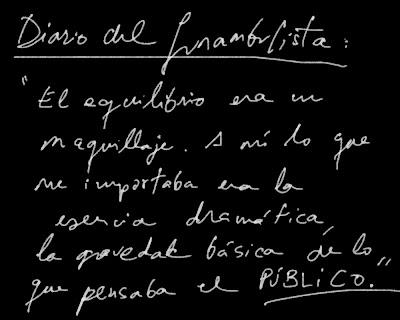 Diario del funambulista:
"El equilibrio era un
maquillaje. A mí lo que
me importaba era la
esencia dramática,
la gravedad básica de lo
que pensaba el PÚBLICO."